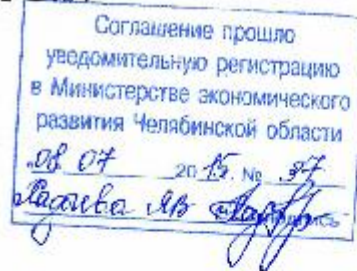 Соглашение прошло
уведомительную регистрацию
в Министерстве экономического
развития Челябинской области
"08" 07 2015. № 37
ЛВ